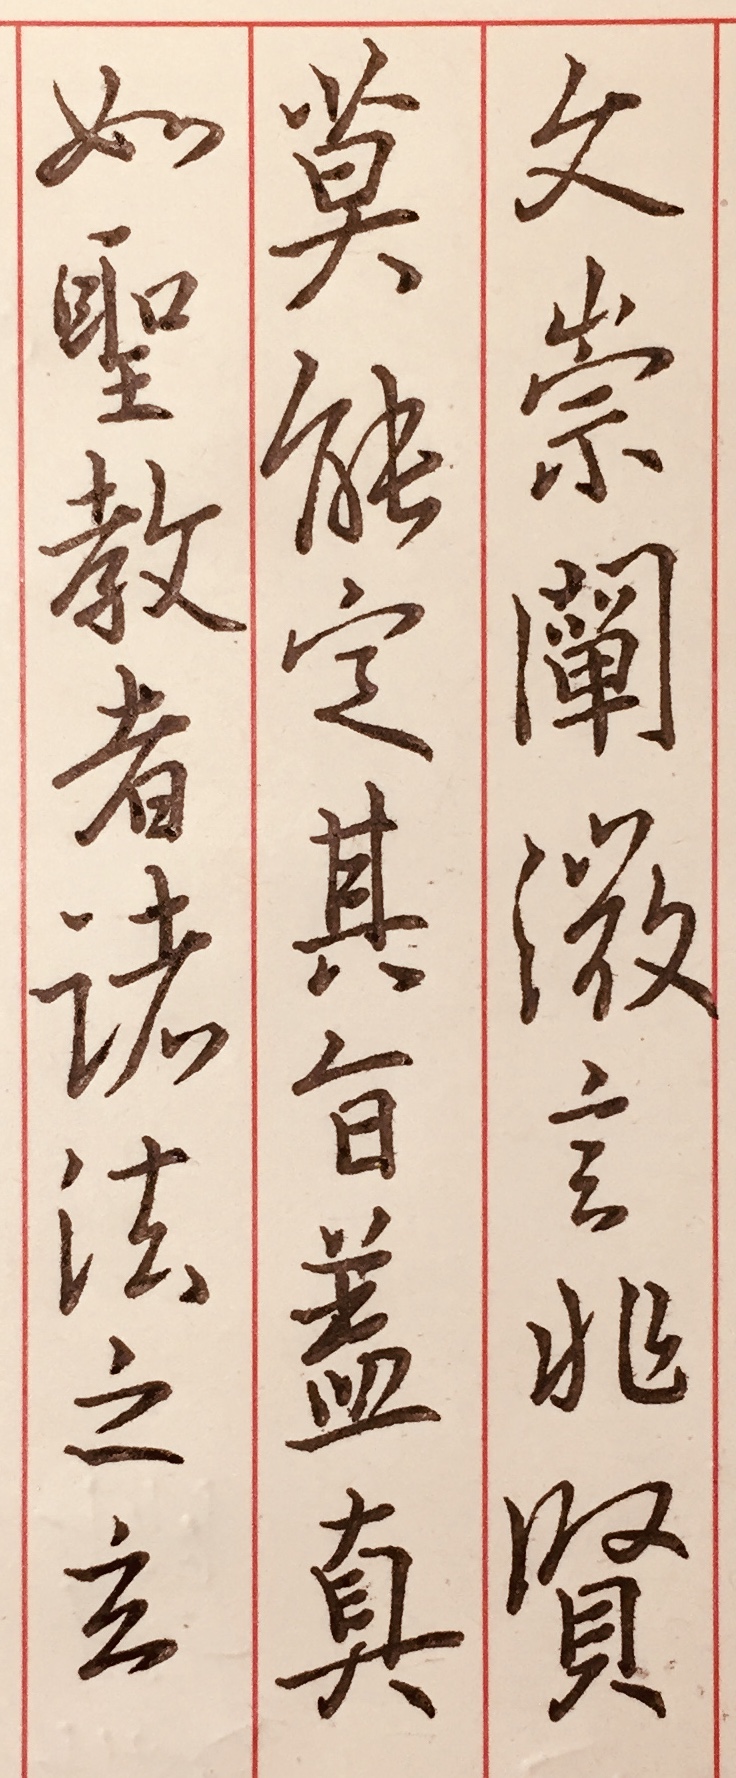 文崇闡微言非賢
莫能定其旨蓋真
如聖教者諸法之玄